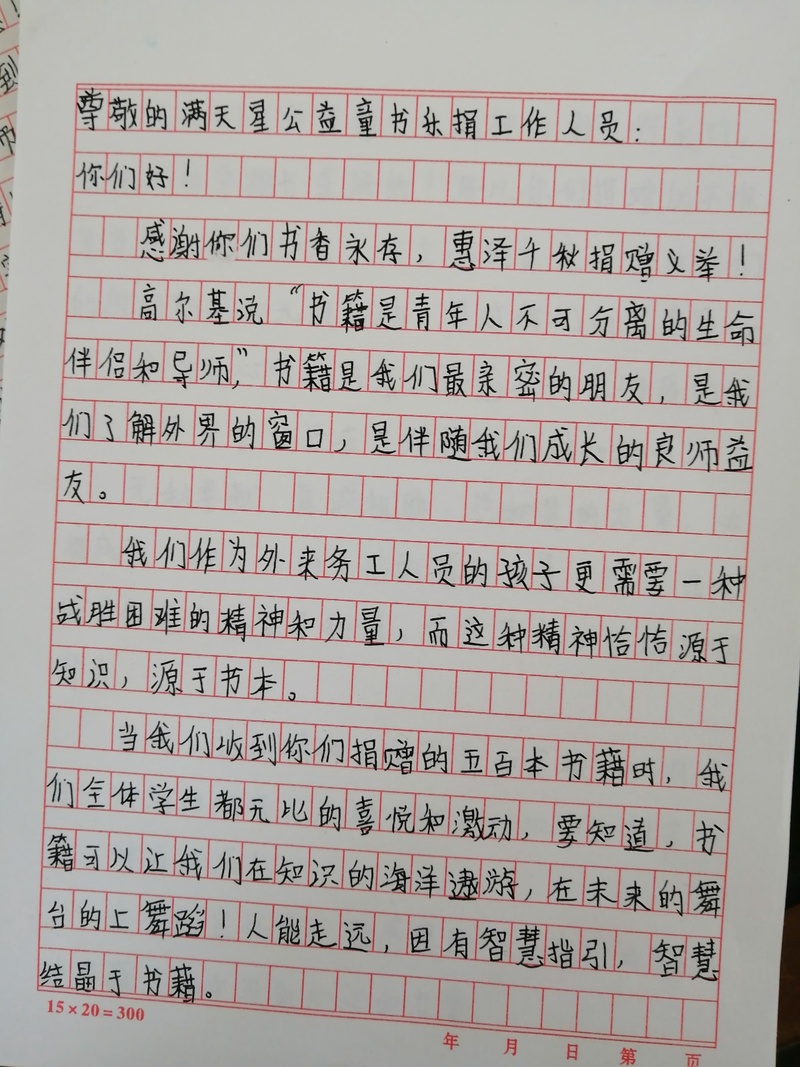 尊敬的满天星公益童书乐捐工作人员：
你们好！
感谢你们书香永存，惠泽千秋捐赠义举！
高尔基说“书籍是青年人不可分离的生命
伴侣和导师，”书籍是我们最亲密的朋友，是我
们了解外界的窗口，是伴随我们成长的良师益
友。
我们作为外来务工人员的孩子更需要一种
战胜困难的精神和力量，而这种精神恰恰源于
知识，源于书本。
当我们收到你们捐赠的五百本书籍时，我
们全体学生都无比的喜悦和激动，要知道，书
籍可以让我们在知识的海洋遨游，在未来的舞
台的上舞蹈！人能走远，因有智慧指引，智慧
结晶于书籍。
15×20=300
年 月 日 第 页